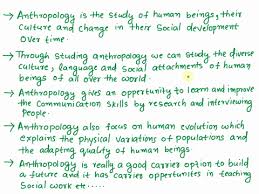 → Anthropology is the study of human beings, their
culture and change in their Social development
Over time.
→ Through studing anthropology we can study the diverse
culture, language and social attachments of human
beings of all over the world.
→ Anthropology gives an opportunity to learn and improve
the Communication Skills by research and interviewing
People.
→ Anthropology also focus on human evolution which
explains the physical variations of populations and
the adapting quality of human beings
→ Anthropology is really a good carrier option to build
a future and it has carrier opportunites in teaching
Social work etc.....